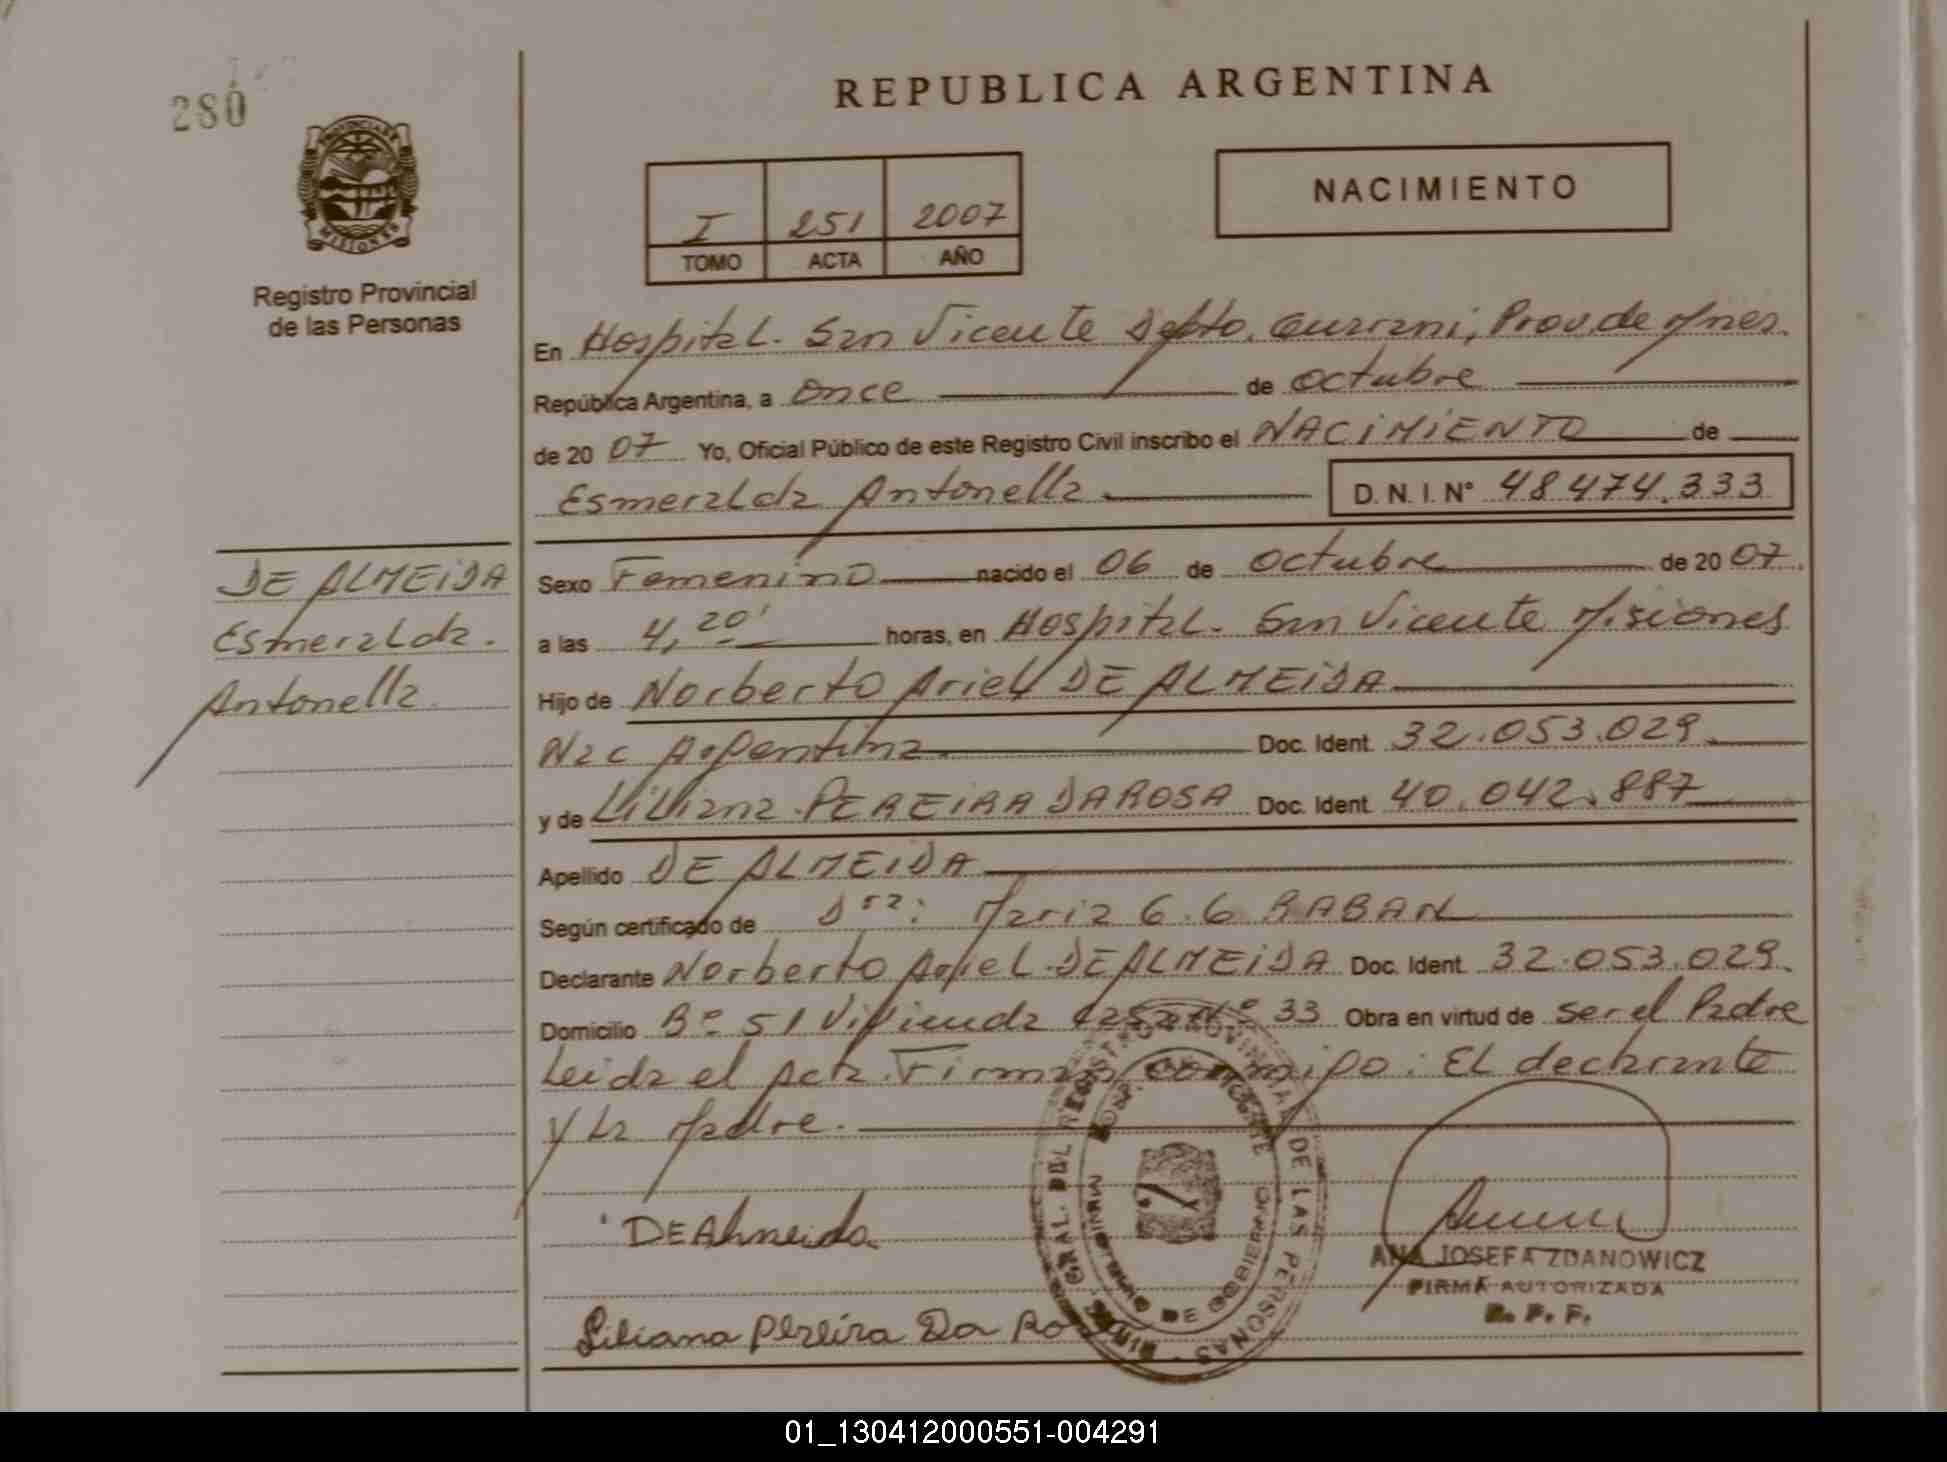 280
PROVINCIA DE
MISIONES
Registro Provincial
de las Personas
REPUBLICA ARGENTINA
I 251 2007
TOMO ACTA AÑO
NACIMIENTO
En Hospital. San Vicente Depto. Guarani, Prov. de Mnes.
República Argentina, a once de octubre
de 2007 Yo, Oficial Público de este Registro Civil inscribo el NACIMIENTO de
Esmeralda Antonella D. N. I. N° 48474.333
DE ALMEIDA
Esmeralda.
Antonella.
Sexo Femenino nacido el 06 de octubre de 2007.
a las 4,20' horas, en Hospital. San Vicente Misiones
Hijo de Norberto Ariel DE ALMEIDA
Nac Argentina Doc. Ident. 32.053.029.
y de Liliana PEREIRA DA ROSA Doc. Ident. 40.042.887
Apellido DE ALMEIDA
Según certificado de Dra: Maria G. G RABAN
Declarante Norberto Ariel DE ALMEIDA Doc. Ident. 32.053.029.
Domicilio B° 51 Vivienda casa N° 33 Obra en virtud de ser el Padre
Leida el Acta. Firman conmigo: El declarante
y la Madre.
DE Almeida
Liliana Pereira Da Ro
GRAL. DEL REGISTRO PROVINCIAL DE LAS PERSONAS
DE GOBIERNO
ANA JOSEFA ZDANOWICZ
FIRMA AUTORIZADA
R. P. F.
01_130412000551-004291